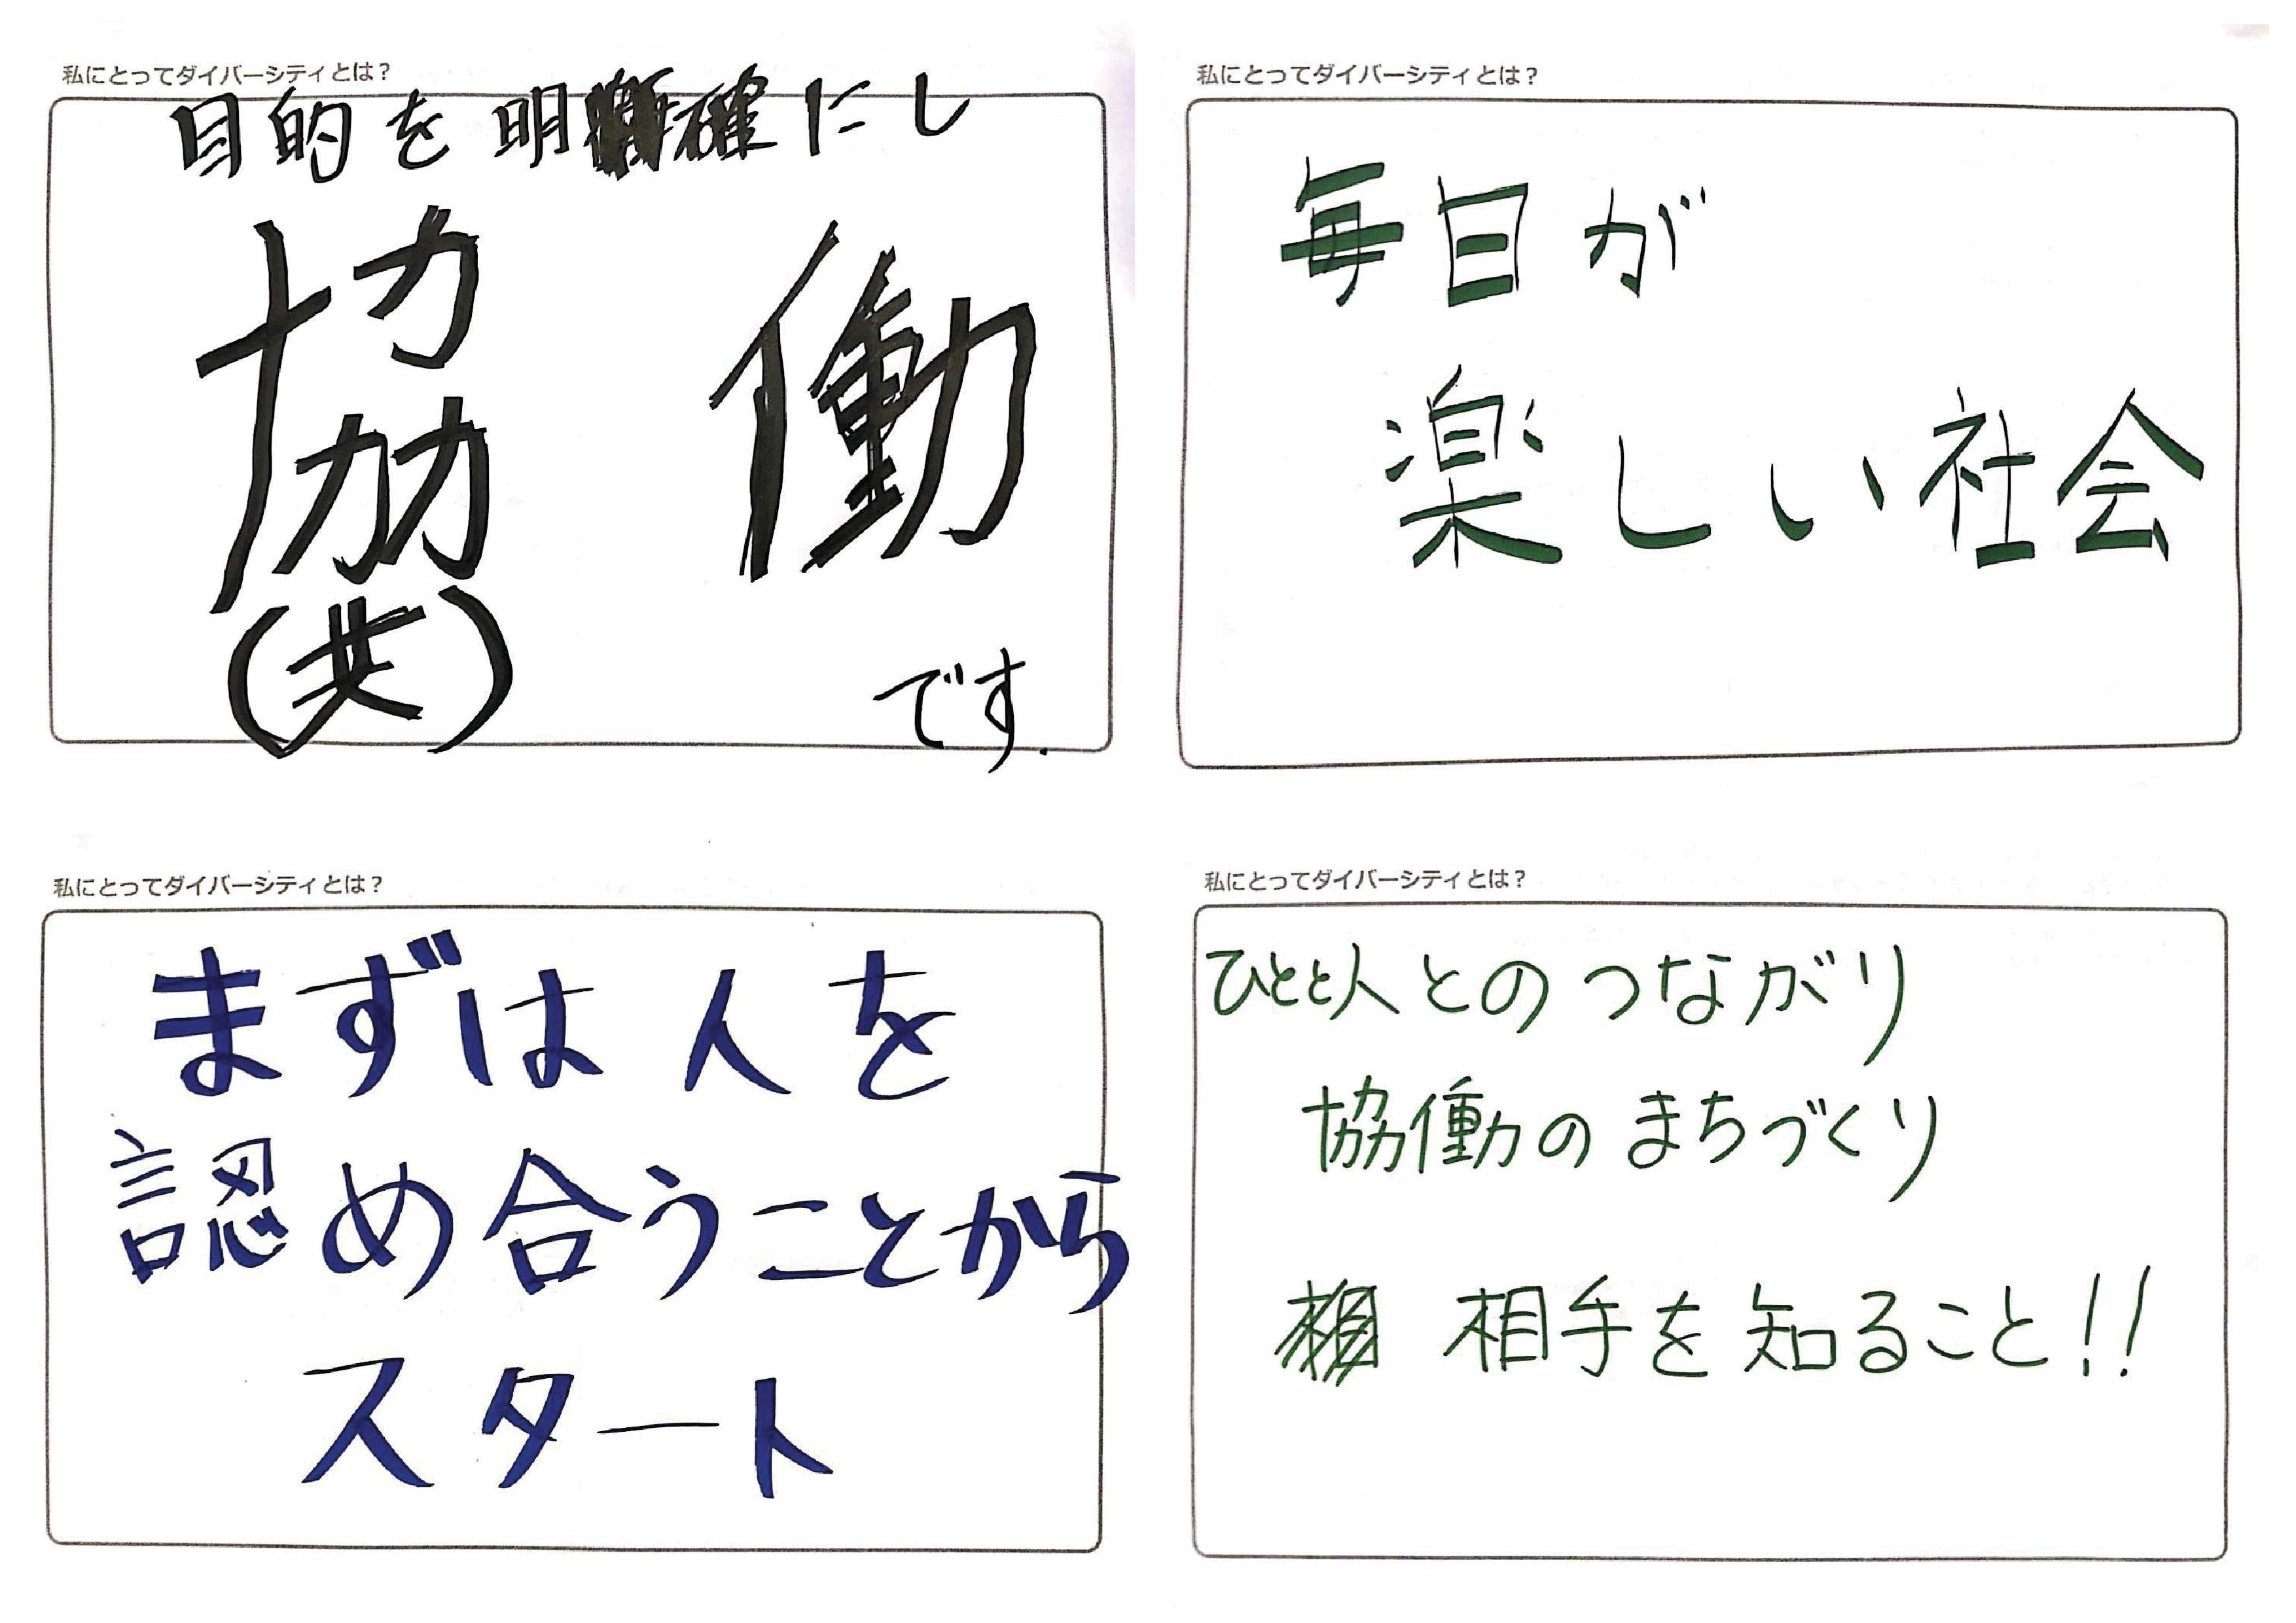 私にとってダイバーシティとは？
目的を明確にし
協働
(共)
です.
私にとってダイバーシティとは？
毎日が
楽しい社会
私にとってダイバーシティとは？
まずは人を
認め合うことから
スタート
私にとってダイバーシティとは？
ひとと人とのつながり
協働のまちづくり
相手を知ること!!